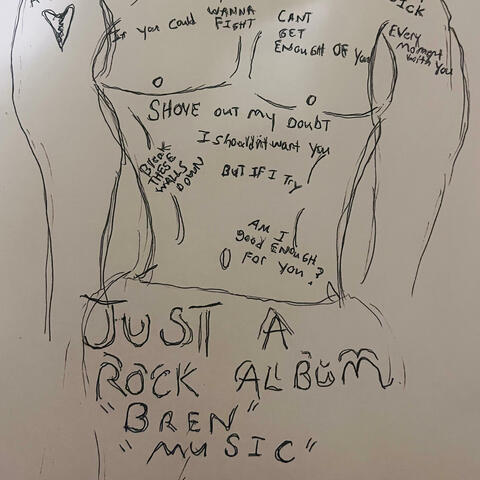 SICK
If you could
WANNA
FIGHT
CANT
GET
ENOUGH OF YOU
EVERY
MOMENT
with you
SHOVE out my DOUBT
I shouldn't want you
BREAK
THESE
WALLS
DOWN
BUT IF I TRY
AM I
good ENOUGH
FOR YOU?
JUST A
ROCK ALBUM
"BREN"
"MUSIC"